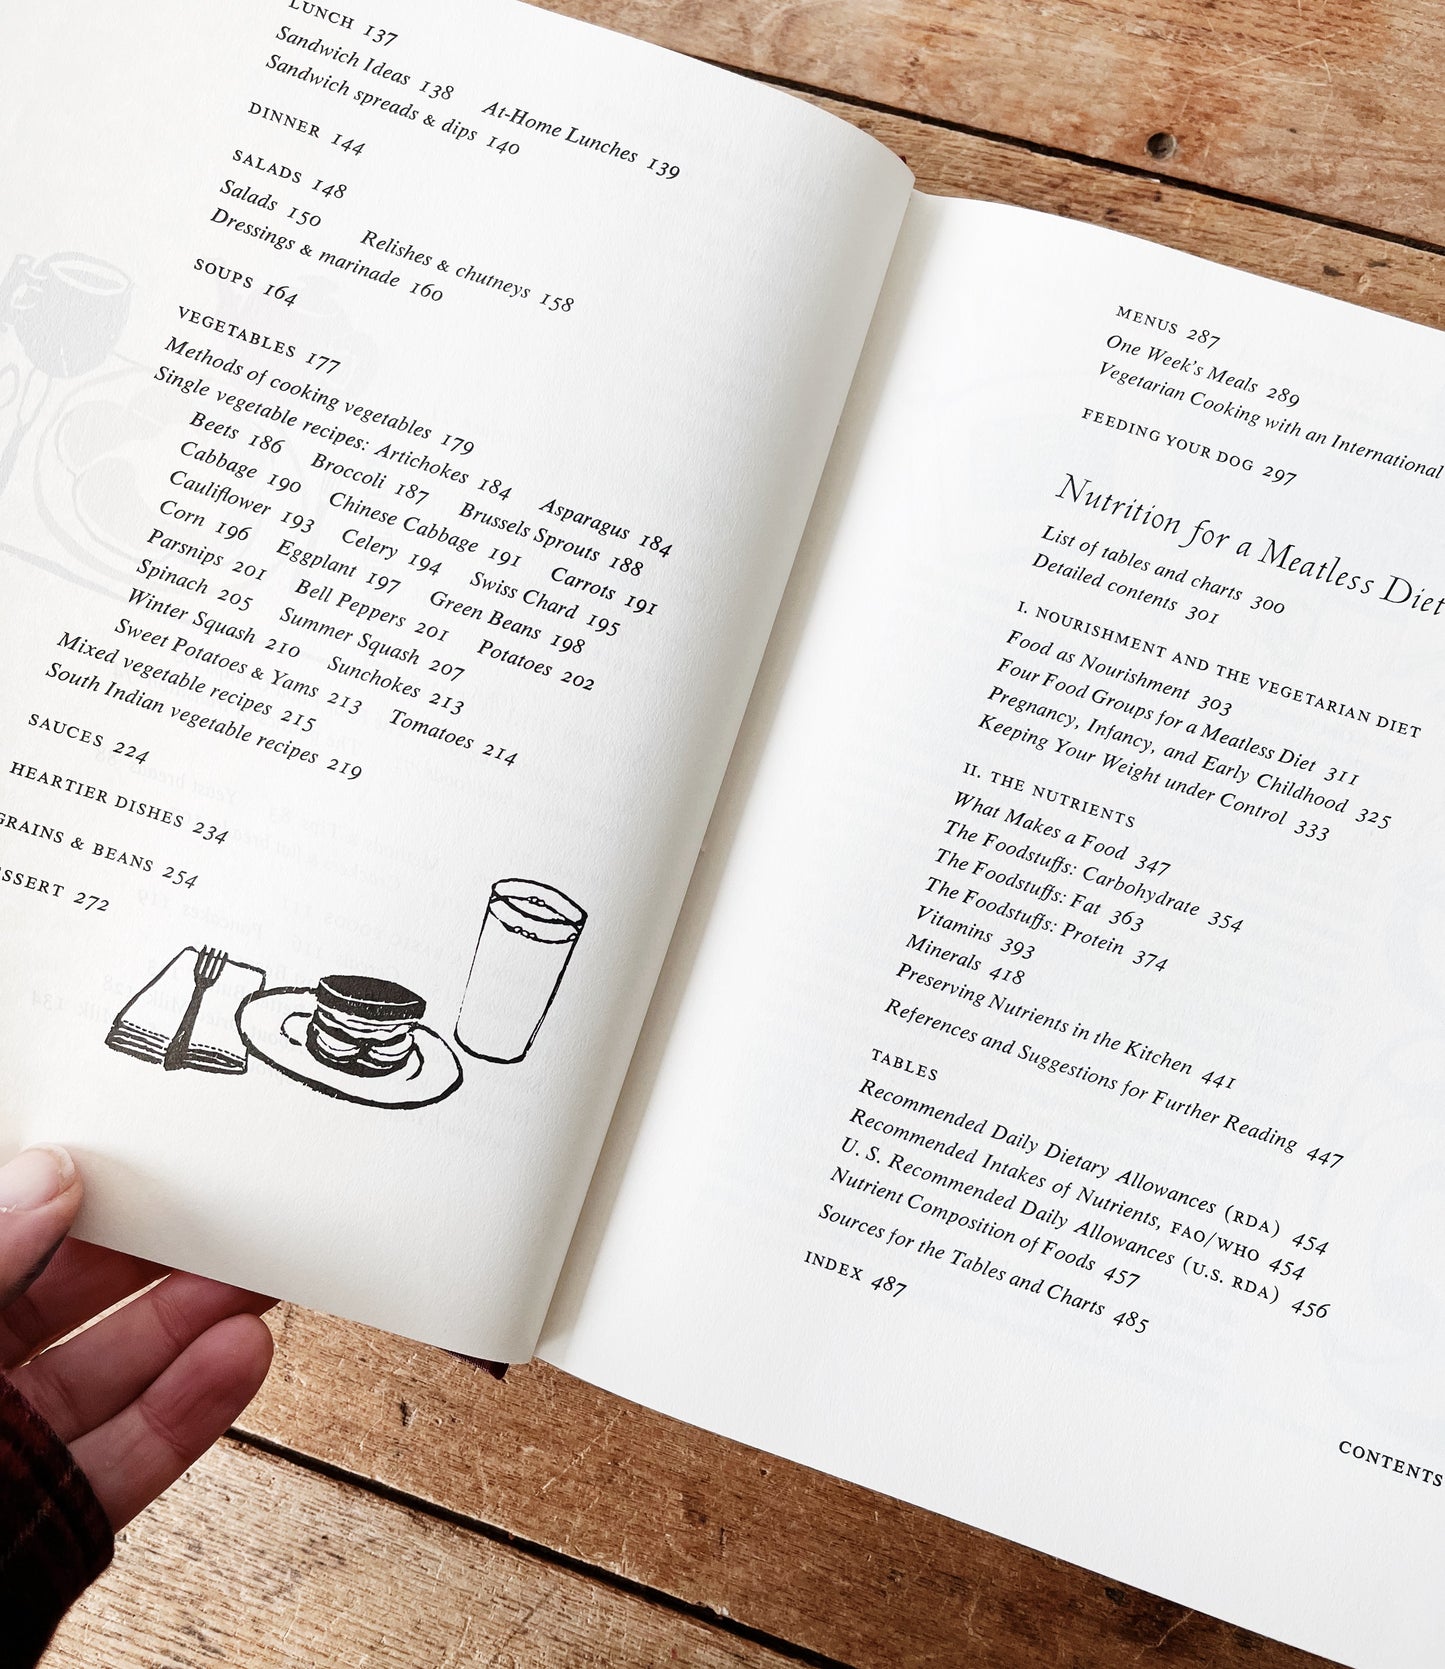 LUNCH 137
Sandwich Ideas 138 At-Home Lunches 139
Sandwich spreads & dips 140
DINNER 144
SALADS 148
Salads 150 Relishes & chutneys 158
Dressings & marinade 160
SOUPS 164
VEGETABLES 177
Methods of cooking vegetables 179
Single vegetable recipes: Artichokes 184 Asparagus 184
Beets 186 Broccoli 187 Brussels Sprouts 188
Cabbage 190 Chinese Cabbage 191 Carrots 191
Cauliflower 193 Celery 194 Swiss Chard 195
Corn 196 Eggplant 197 Green Beans 198
Parsnips 201 Bell Peppers 201 Potatoes 202
Spinach 205 Summer Squash 207
Winter Squash 210 Sunchokes 213
Sweet Potatoes & Yams 213 Tomatoes 214
Mixed vegetable recipes 215
South Indian vegetable recipes 219
SAUCES 224
HEARTIER DISHES 234
GRAINS & BEANS 254
SSERT 272
MENUS 287
One Week's Meals 289
Vegetarian Cooking with an International
FEEDING YOUR DOG 297
Nutrition for a Meatless Diet
List of tables and charts 300
Detailed contents 301
I. NOURISHMENT AND THE VEGETARIAN DIET
Food as Nourishment 303
Four Food Groups for a Meatless Diet 311
Pregnancy, Infancy, and Early Childhood 325
Keeping Your Weight under Control 333
II. THE NUTRIENTS
What Makes a Food 347
The Foodstuffs: Carbohydrate 354
The Foodstuffs: Fat 363
The Foodstuffs: Protein 374
Vitamins 393
Minerals 418
Preserving Nutrients in the Kitchen 441
References and Suggestions for Further Reading 447
TABLES
Recommended Daily Dietary Allowances (RDA) 454
Recommended Intakes of Nutrients, FAO/WHO 454
U. S. Recommended Daily Allowances (U.S. RDA) 456
Nutrient Composition of Foods 457
Sources for the Tables and Charts 485
INDEX 487
CONTENTS